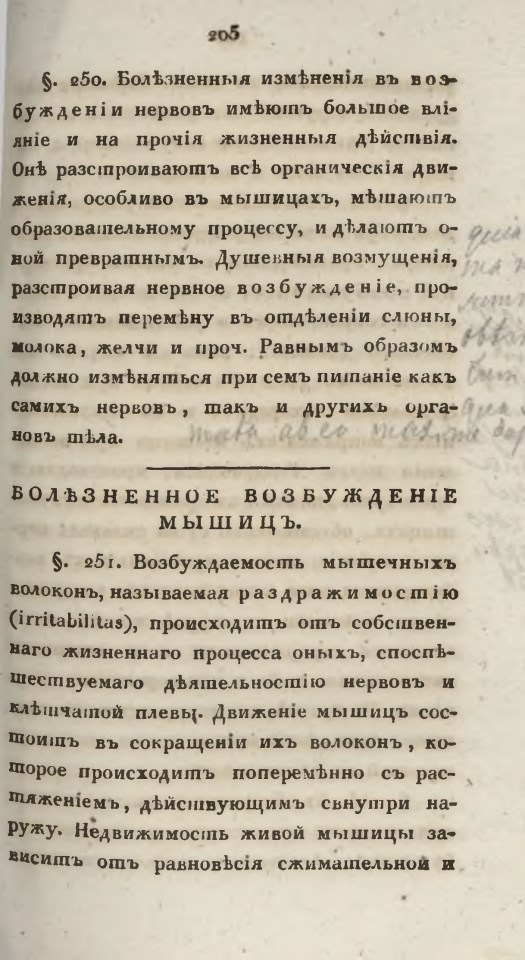 205
§. 250. Болѣзненныя измѣненія въ воз-
бужденіи нервовъ имѣютъ большое влі-
яніе и на прочія жизненныя дѣйствія.
Онѣ разстроиваютъ всѣ органическія дви-
женія, особливо въ мышицахъ, мѣшаютъ
образовательному процессу, и дѣлаютъ о-
ной превратнымъ. Душевныя возмущенія,
разстроивая нервное возбужденіе, про-
изводятъ перемѣну въ отдѣленіи слюны,
молока, желчи и проч. Равнымъ образомъ
должно измѣняться при семъ питаніе какъ
самихъ нервовъ, такъ и другихъ орга-
новъ тѣла.
БОЛѢЗНЕННОЕ ВОЗБУЖДЕНІЕ
МЫШИЦЪ.
§. 251. Возбуждаемость мышечныхъ
волоконъ, называемая раздражимостію
(irritabilitas), происходитъ отъ собствен-
наго жизненнаго процесса оныхъ, споспѣ-
шествуемаго дѣятельностію нервовъ и
клѣтчатой плевы. Движеніе мышицъ сос-
тоитъ въ сокращеніи ихъ волоконъ, ко-
торое происходитъ поперемѣнно съ рас-
тяженіемъ, дѣйствующимъ свнутри на-
ружу. Недвижимость живой мышицы за-
виситъ отъ равновѣсія сжимательной и